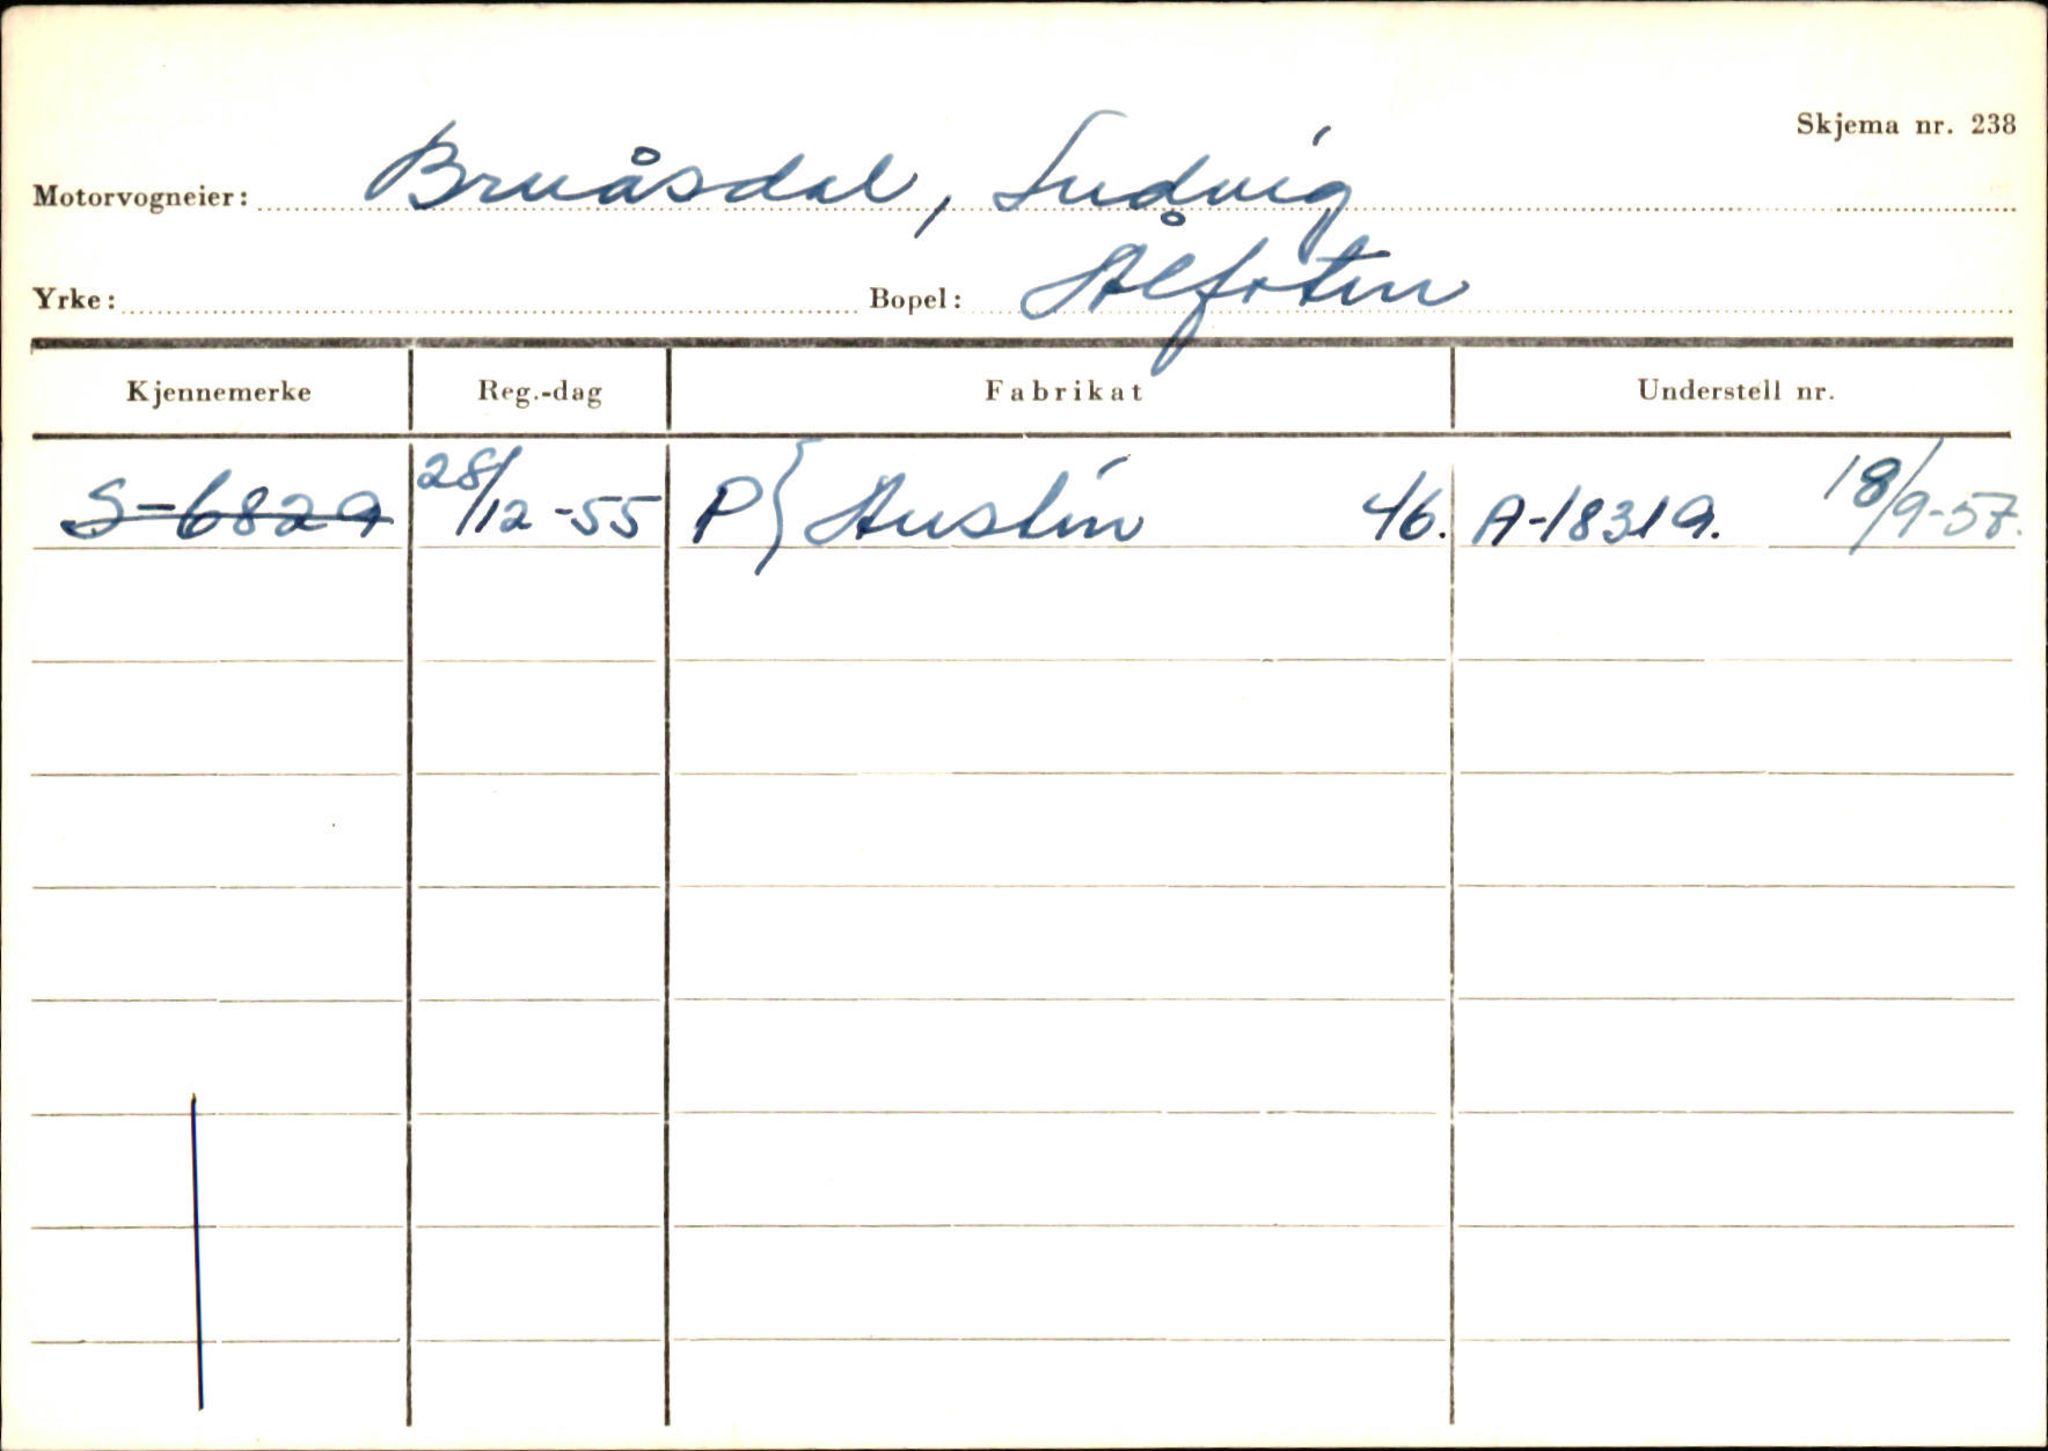 Skjema nr. 238
Motorvogneier: Bruåsdal, Ludvig
Yrke: Bopel: Ålfoten
Kjennemerke Reg.-dag Fabrikat Understell nr.
S-6829 28/12-55 P} Austin 46. A-18319. 18/9-57.